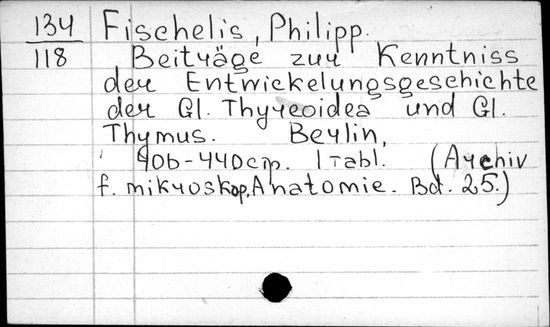 134 Fischelis, Philipp.
118 Beiträge zur Kenntniss
der Entwickelungsgeschichte
der Gl. Thyreoidea und Gl.
Thymus. Berlin,
406-440 стр. 1 Tabl. (Archiv
f. mikroskop. Anatomie. Bd. 25.)